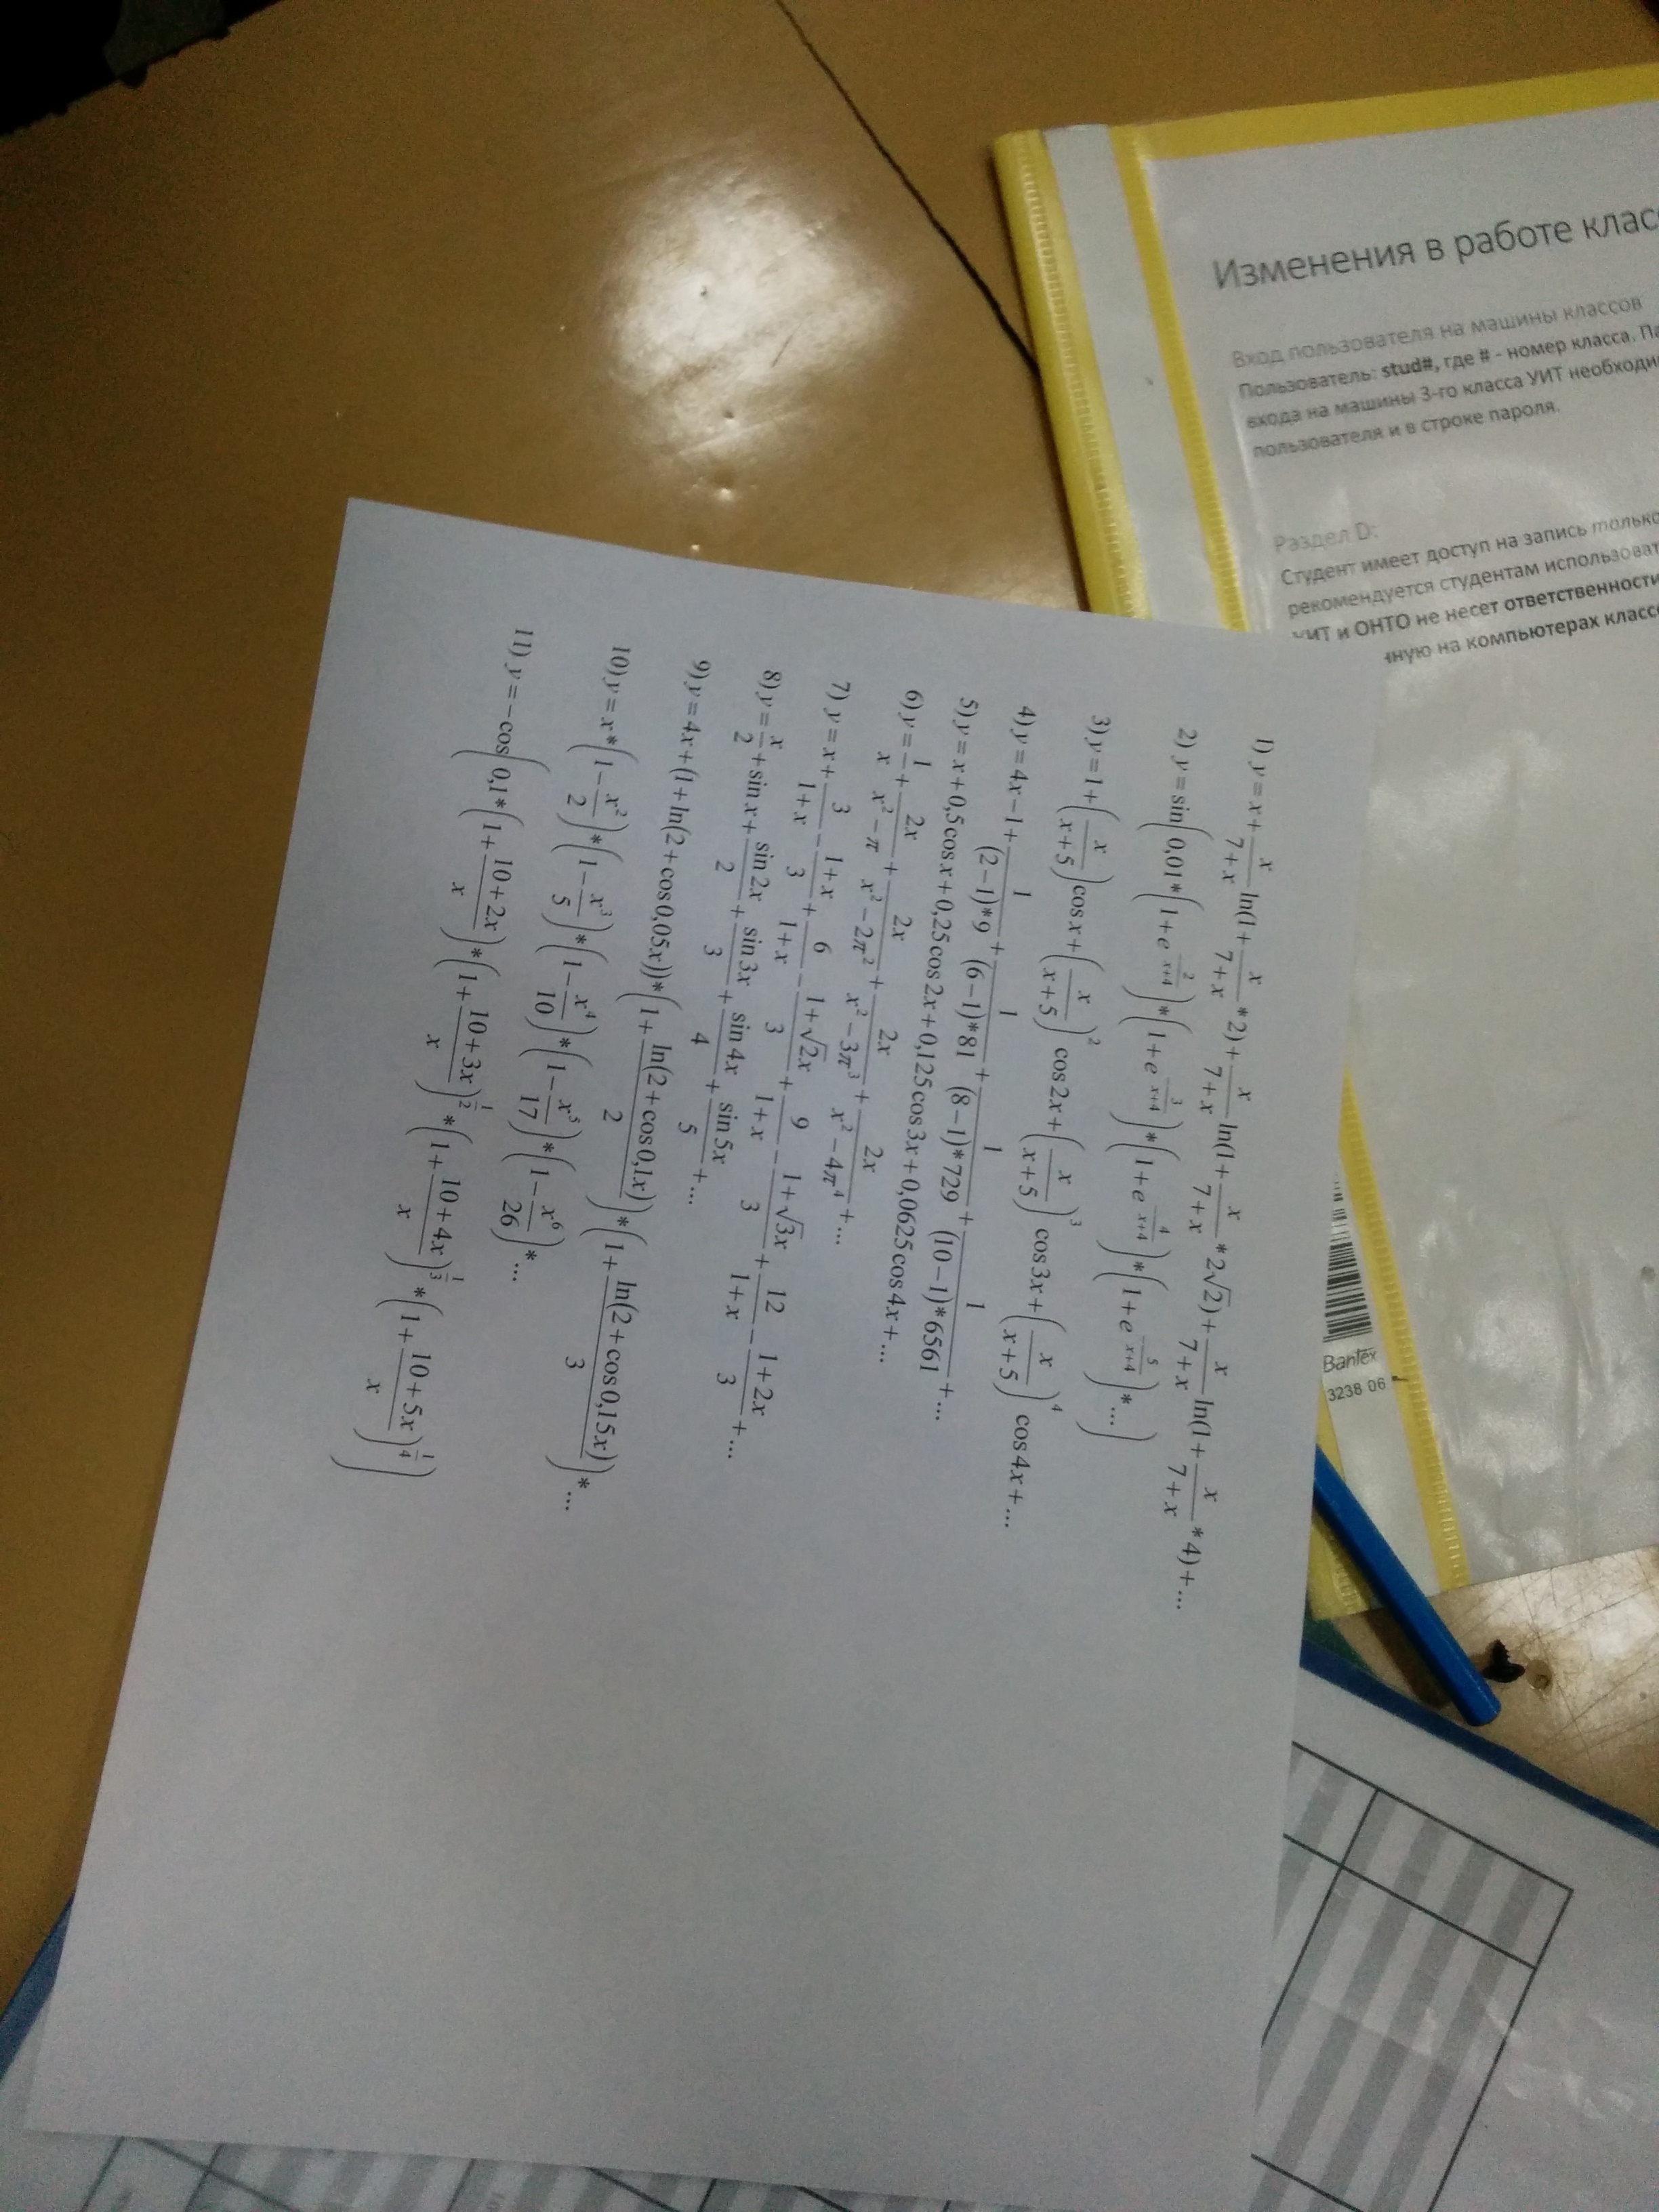 Изменения в работе клас
Вход пользователя на машины классов
Пользователь: stud#, где # - номер класса.
входа на машины 3-го класса УИТ
пользователя и в строке пароля.
Раздел D:
Студент имеет доступ на запись только
рекомендуется студентам
УИТ и ОНТО не несет ответственности
на компьютерах
Bantex
3238 06
1) y = x + x/(7+x) ln(1 + x/(7+x) * 2) + x/(7+x) ln(1 + x/(7+x) * 2√2) + x/(7+x) ln(1 + x/(7+x) * 4) + ...
2) y = sin(0,01 * (1 + e^(2/(x+4))) * (1 + e^(3/(x+4))) * (1 + e^(4/(x+4))) * (1 + e^(5/(x+4))) * ...)
3) y = 1 + (x/(x+5)) cos x + (x/(x+5))^2 cos 2x + (x/(x+5))^3 cos 3x + (x/(x+5))^4 cos 4x + ...
4) y = 4x − 1 + 1/((2−1)*9) + 1/((6−1)*81) + 1/((8−1)*729) + 1/((10−1)*6561) + ...
5) y = x + 0,5 cos x + 0,25 cos 2x + 0,125 cos 3x + 0,0625 cos 4x + ...
6) y = 1/x + 2x/(x^2−π) + 2x/(x^2−2π^2) + 2x/(x^2−3π^3) + 2x/(x^2−4π^4) + ...
7) y = x + 3/(1+x) − (1+x)/3 + 6/(1+x) − (1+√2x)/3 + 9/(1+x) − (1+√3x)/3 + 12/(1+x) − (1+2x)/3 + ...
8) y = x/2 + sin x + sin 2x/2 + sin 3x/3 + sin 4x/4 + sin 5x/5 + ...
9) y = 4x + (1 + ln(2 + cos 0,05x)) * (1 + ln(2 + cos 0,1x)/2) * (1 + ln(2 + cos 0,15x)/3) * ...
10) y = x * (1 − x^2/2) * (1 − x^3/5) * (1 − x^4/10) * (1 − x^5/17) * (1 − x^6/26) * ...
11) y = −cos(0,1 * (1 + (10+2x)/x) * (1 + (10+3x)/x)^(1/2) * (1 + (10+4x)/x)^(1/3) * (1 + (10+5x)/x)^(1/4))